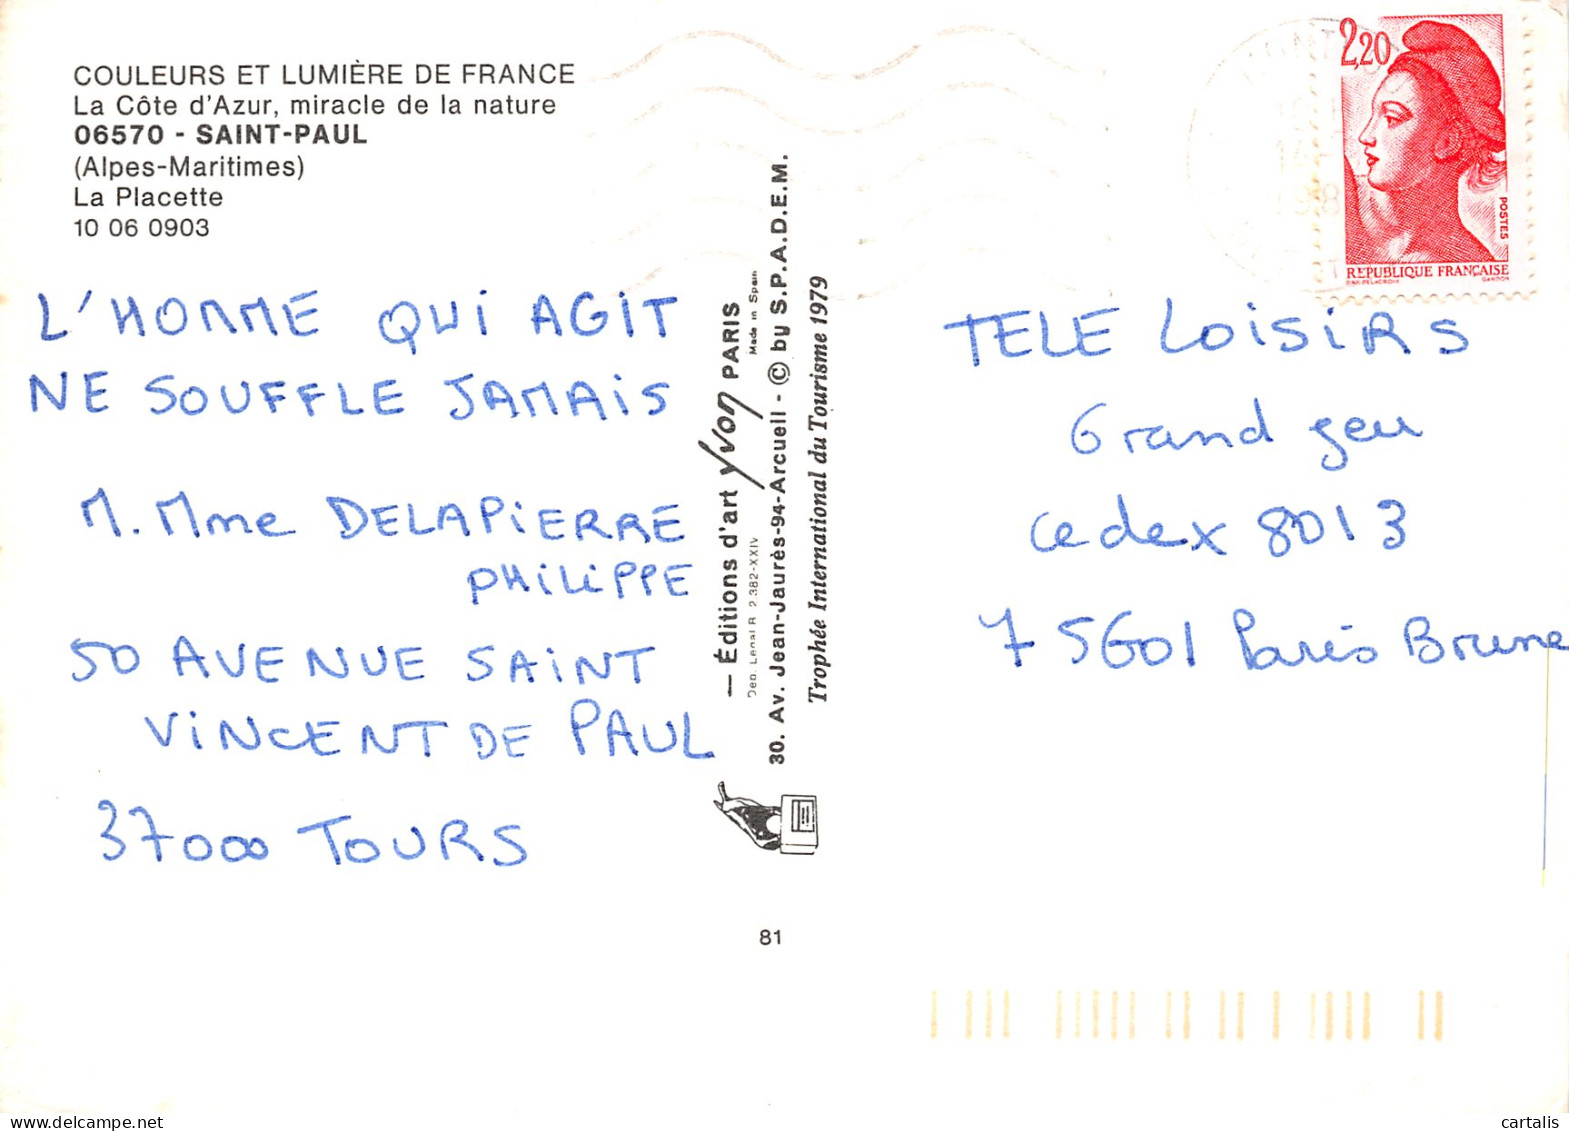 COULEURS ET LUMIÈRE DE FRANCE
La Côte d'Azur, miracle de la nature
06570 - SAINT-PAUL
(Alpes-Maritimes)
La Placette
10 06 0903
L'HOMME QUI AGIT
NE SOUFFLE JAMAIS
M. Mme DELAPIERRE
PHILIPPE
50 AVENUE SAINT
VINCENT DE PAUL
37000 TOURS
— Éditions d'art yvon PARIS
Made in Spain
30. Av. Jean-Jaurès-94-Arcueil - © by S.P.A.D.E.M.
Trophée International du Tourisme 1979
81
2,20
POSTES
REPUBLIQUE FRANÇAISE
TELE LOISIRS
Grand jeu
cedex 8013
75601 Paris Brune
cartalis